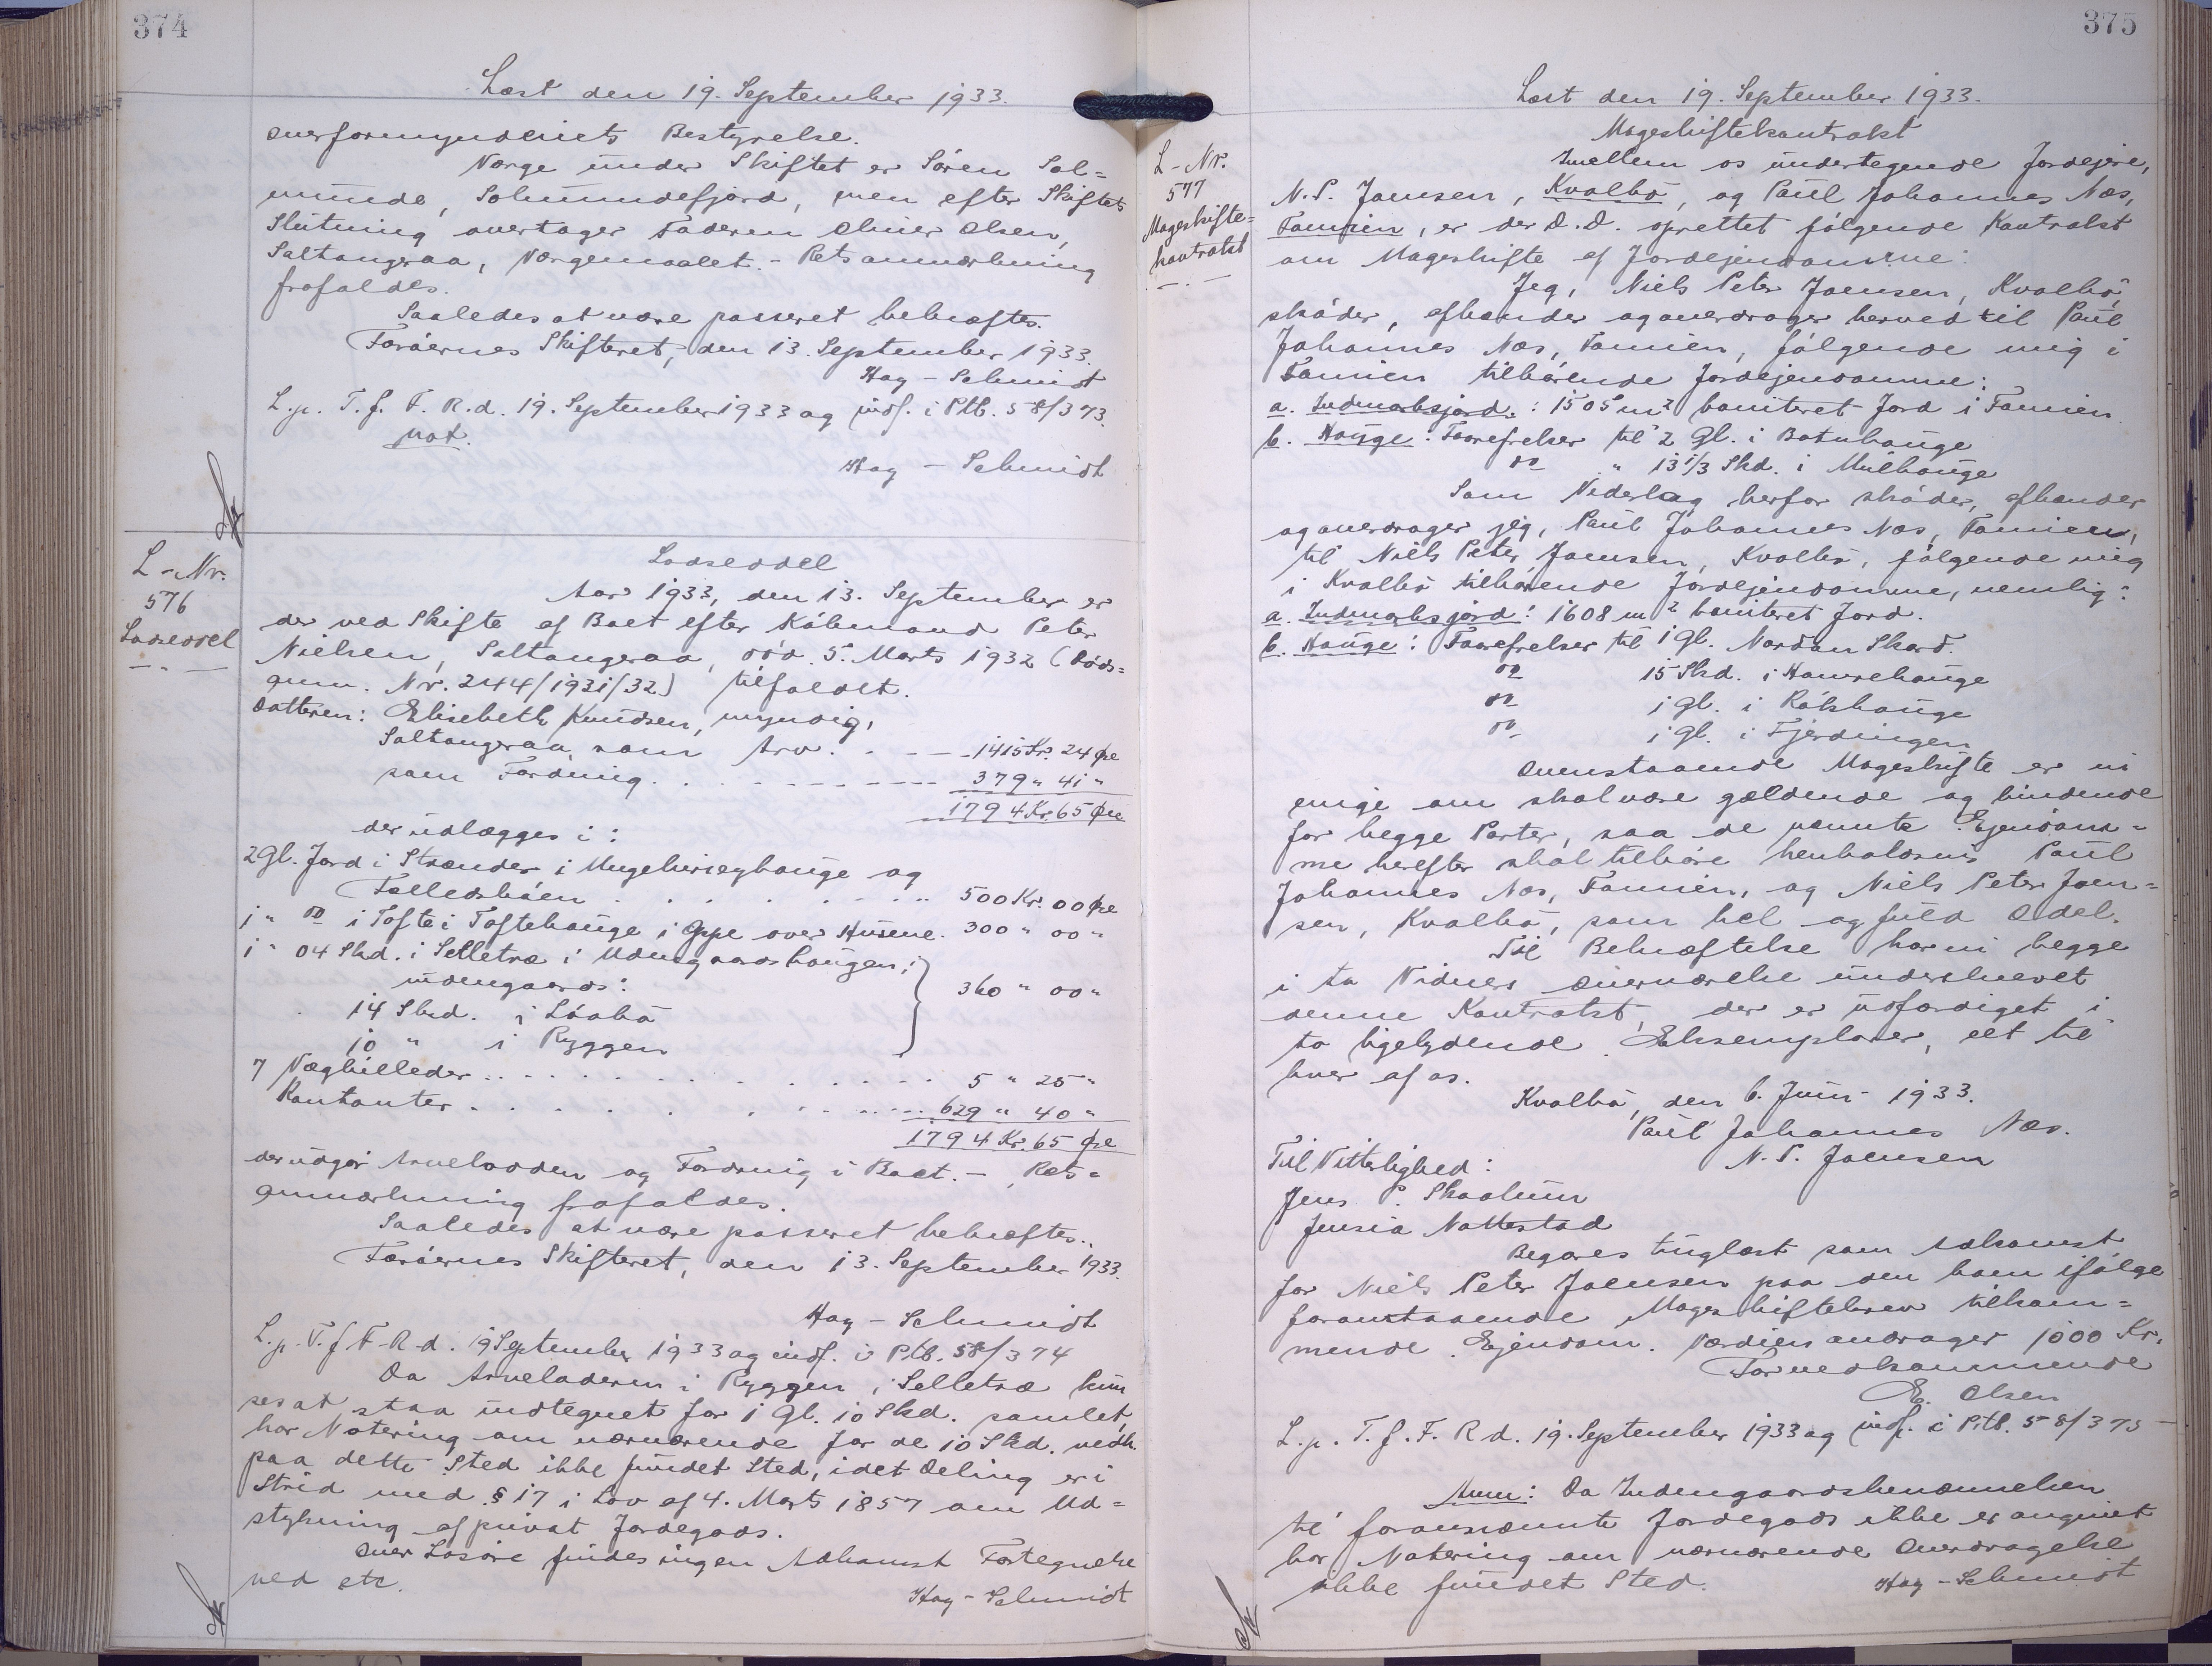 374
Læst den 19. September 1933.
overformynderiets Bestyrelse.
Værge under Skiftet er Sören Sol=
munde, Solmundefjord, men efter Skiftets
Slutning overtager Faderen Oliver Olsen,
Saltangeraa, Værgemaalet. - Retsanmærkning
frafaldes.
Saaledes at være passeret bekræftes.
Færöernes Skifteret, den 13. September 1933.
Hag - Schmidt
L.p. T. f. F. R. d. 19. September 1933 og indf. i Ptb. 58/373.
not.
Hag - Schmidt
L - Nr.
576
Lodseddel
Lodseddel
Aar 1933, den 13. September er
der ved Skifte af Boet efter Köbmand Peter
Nielsen, Saltangeraa, död 5. Marts 1932 (Döds=
anm. Nr. 244/1931/32) tilfaldt.
Datteren: Elisebeth Knudsen, myndig,
Saltangeraa som Arv. . . - - - 1415 Kr. 24 Øre
som Fordring. . . - - - - - 379 " 41 "
1794 Kr. 65 Øre
der udlægges i:
2 Gl. Jord i Strænder i og
Fælledshöen . . . . . . . . 500 Kr. 00 Øre
1 " do i Tofte i Toftehauge i Oppe over Husene. 300 " 00 "
1 " 04 Skd. i Selletræ i Udengaardshaugen;
indengaards: 360 " 00 "
14 Skd. i Löabö
10 " i Ryggen
7 Vægbilleder . . . . . . . . . 5 " 25 "
Kontanter . . . . . . . . . 629 " 40 "
1794 Kr. 65 Øre
der udgör Arvelodden og Fordring i Boet. - Rets=
anmærkning frafaldes.
Saaledes at være passeret bekræftes.
Færöernes Skifteret, den 13. September 1933.
Hag - Schmidt
L. p. T. f. F. R. d. 19 September 1933 og indf. i Ptb. 58/374
Da Arveladeren i Ryggen i Selletræ kun
ses at staa indtegnet for 1 Gl. 10 Skd. samlet,
har Notering om nærværende for de 10 Skd. vedk.
paa dette Sted ikke fundet Sted, idet Deling er i
Strid med § 17 i Lov af 4. Marts 1857 om Ud=
stykning af privat Jordegods.
Over Lösöre findes ingen Adkomst Fortegnelse
ved etc.
Hag - Schmidt
375
Læst den 19. September 1933.
L - Nr.
577
Mageskifte=
kontrakt
Mageskiftekontrakt
Imellem os undertegnede Jordejere,
N. P. Joensen, Kvalbö, og Paul Johannes Næs,
Famien, er der D. D. oprettet fölgende Kontrakt
om Mageskifte af Jordejendomme:
Jeg, Niels Peter Joensen, Kvalbö,
sköder, afhænder og overdrager herved til Paul
Johannes Næs, Famien, fölgende mig i
Famien tilhörende Jordejendomme:
a. Indmarksjord: 1505 m² boniteret Jord i Famien
b. Hauge: Faarefrelser til 2 Gl. i Botnhauge
do " 13 1/3 Skd. i Mulhauge
Som Vederlag herfor sköder, afhænder
og overdrager jeg, Paul Johannes Næs, Famien,
til Niels Peter Joensen, Kvalbö, fölgende mig
i Kvalbö tilhörende Jordejendomme, nemlig:
a. Indmarksjord: 1608 m² boniteret Jord.
b. Hauge: Faarefrelser til 1 Gl. Nordan Skard.
do 15 Skd. i Hamrehauge
do 1 Gl. i Rókshauge
do 1 Gl. i Fjerdingen
Ovenstaaende Mageskifte er vi
enige om skal være gældende og bindende
for begge Parter, saa de nævnte Ejendom=
me herefter skal tilhöre henholdsvis Paul
Johannes Næs, Famien, og Niels Peter Joen=
sen, Kvalbö, som hel og fuld Odel.
Til Bekræftelse har vi begge
i to Vidners Overværelse underskrevet
denne Kontrakt, der er udfærdiget i
to ligelydende Eksemplarer, eet til
hver af os.
Kvalbö, den 6. Juni 1933.
Paul Johannes Næs.
N. P. Joensen
Til Vitterlighed:
Jens P. Skaalum
Jensia Nattestad
Begæres tinglæst som Adkomst
for Niels Peter Joensen paa den ham ifölge
foranstaaende Mageskiftebrev tilkom=
mende Ejendom. Værdien andrager 1000 Kr.
Forvedkommende
E. Olsen
L. p. T. f. F. R d. 19. September 1933 og indf. i Ptb. 58/375
Anm: Da Indengaardsbenævnelsen
til forannævnte Jordegods ikke er angivet
har Notering om nærværende Overdragelse
ikke fundet Sted.
Hag - Schmidt